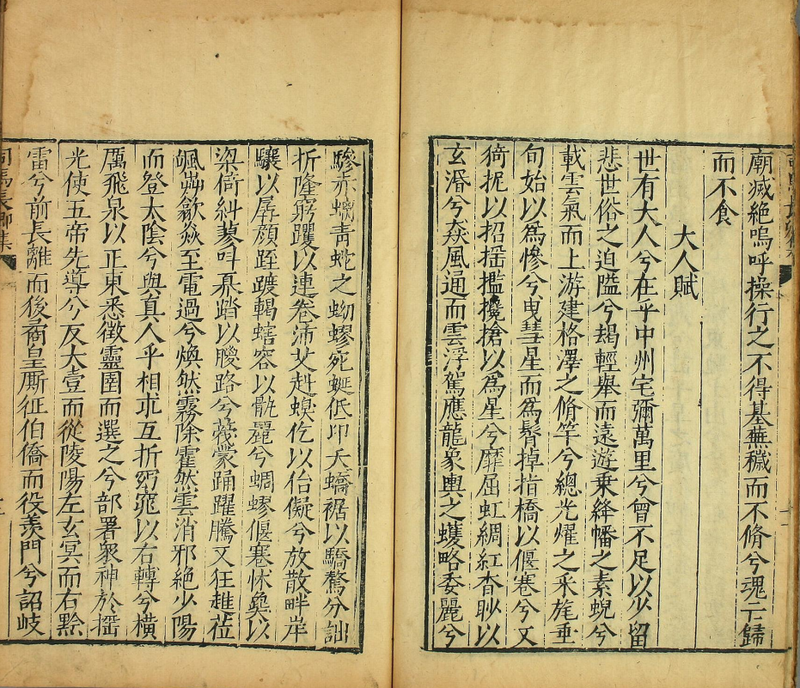 廟滅絶嗚呼操行之不得基蕪穢而不脩兮魂亡歸
而不食
大人賦
世有大人兮在乎中州宅彌萬里兮曾不足以少留
悲世俗之迫隘兮朅輕舉而遠遊乗絳幡之素蜺兮
載雲氣而上游建格澤之脩竿兮總光燿之采旄垂
旬始以爲㡎兮曳彗星而爲髾掉指橋以偃蹇兮又
猗抳以招揺攬欃搶以爲旌兮靡屈虹而爲綢紅杳眇以
玄湣兮猋風通而雲浮駕應龍象輿之蠖略委麗兮
驂赤螭青蛇之蚴蟉宛蜒低卬夭蟜裾以驕驁兮詘
折隆窮躩以連卷沛艾赳螑仡以佁儗兮放散畔岸
驤以孱顔踁踱輵螛容以骫麗兮蜩蟉偃蹇怵㚟以
梁倚糾蓼叫奡踏以朡路兮薎蒙踊躍騰又狂趡莅
颯芔歙猋至電過兮煥然霧除霍然雲消邪絶少陽
而登太陰兮與真人乎相求互折窈窕以右轉兮橫
厲飛泉以正東悉徵靈圉而選之兮部署衆神於揺
光使五帝先導兮反大壹而從陵陽左玄冥而右黔
雷兮前長離而後矞皇厮征伯僑而役羨門兮詔岐
司馬長卿集